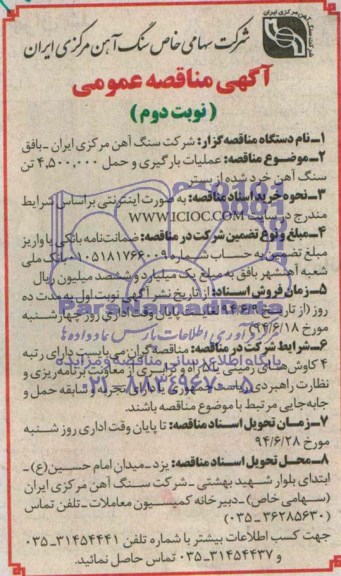 شرکت سنگ آهن مرکزی ایران
شرکت سهامی خاص سنگ آهن مرکزی ایران
آگهی مناقصه عمومی
( نوبت دوم )
۱ـ نام دستگاه مناقصه گزار: شرکت سنگ آهن مرکزی ایران ـ بافق
۲ـ موضوع مناقصه: عملیات بارگیری و حمل ۴,۵۰۰,۰۰۰ تن
سنگ آهن خرد شده از بستر
۳ـ نحوه خرید اسناد مناقصه: به صورت اینترنتی براساس شرایط
مندرج در سایت WWW.ICIOC.COM
۴ـ مبلغ و نوع تضمین شرکت در مناقصه: ضمانت‌نامه بانکی یا واریز
مبلغ تضمین به حساب شماره ۰۱۰۵۱۸۱۷۶۶۰۰۹ بانک ملی
شعبه آهنشهر بافق به مبلغ یک میلیارد و ششصد میلیون ریال
۵ـ زمان فروش اسناد: از تاریخ نشر آگهی نوبت اول به مدت ده
روز (از تاریخ ۹۴/۶/۹ لغایت پایان وقت اداری روز چهارشنبه
مورخ ۹۴/۶/۱۸)
۶ـ شرایط شرکت در مناقصه: مناقصه گران می بایست دارای رتبه
۴ کاوش های زمینی یا ۵ راه و ترابری از معاونت برنامه‌ریزی و
نظارت راهبردی ریاست جمهوری یا دارای تجربه و سابقه حمل و
جابه‌جایی مرتبط با موضوع مناقصه باشند.
۷ـ زمان تحویل اسناد مناقصه: تا پایان وقت اداری روز شنبه
مورخ ۹۴/۶/۲۸
۸ـ محل تحویل اسناد مناقصه: یزد ـ میدان امام حسین(ع) ـ
ابتدای بلوار شهید بهشتی ـ شرکت سنگ آهن مرکزی ایران
(سهامی خاص) ـ دبیرخانه کمیسیون معاملات ـ تلفن تماس
(۰۳۵-۳۶۲۸۵۶۳۰)
جهت کسب اطلاعات بیشتر با شماره تلفن ۳۱۴۵۴۴۴۱-۰۳۵
و ۳۱۴۵۴۴۳۷-۰۳۵ تماس حاصل نمائید.
ParsNamadData
فن آوری اطلاعات پارس نماد داده ها
پایگاه اطلاع رسانی مناقصه و مزایده
۰۲۱-۸۸۳۴۹۶۷۰-۵